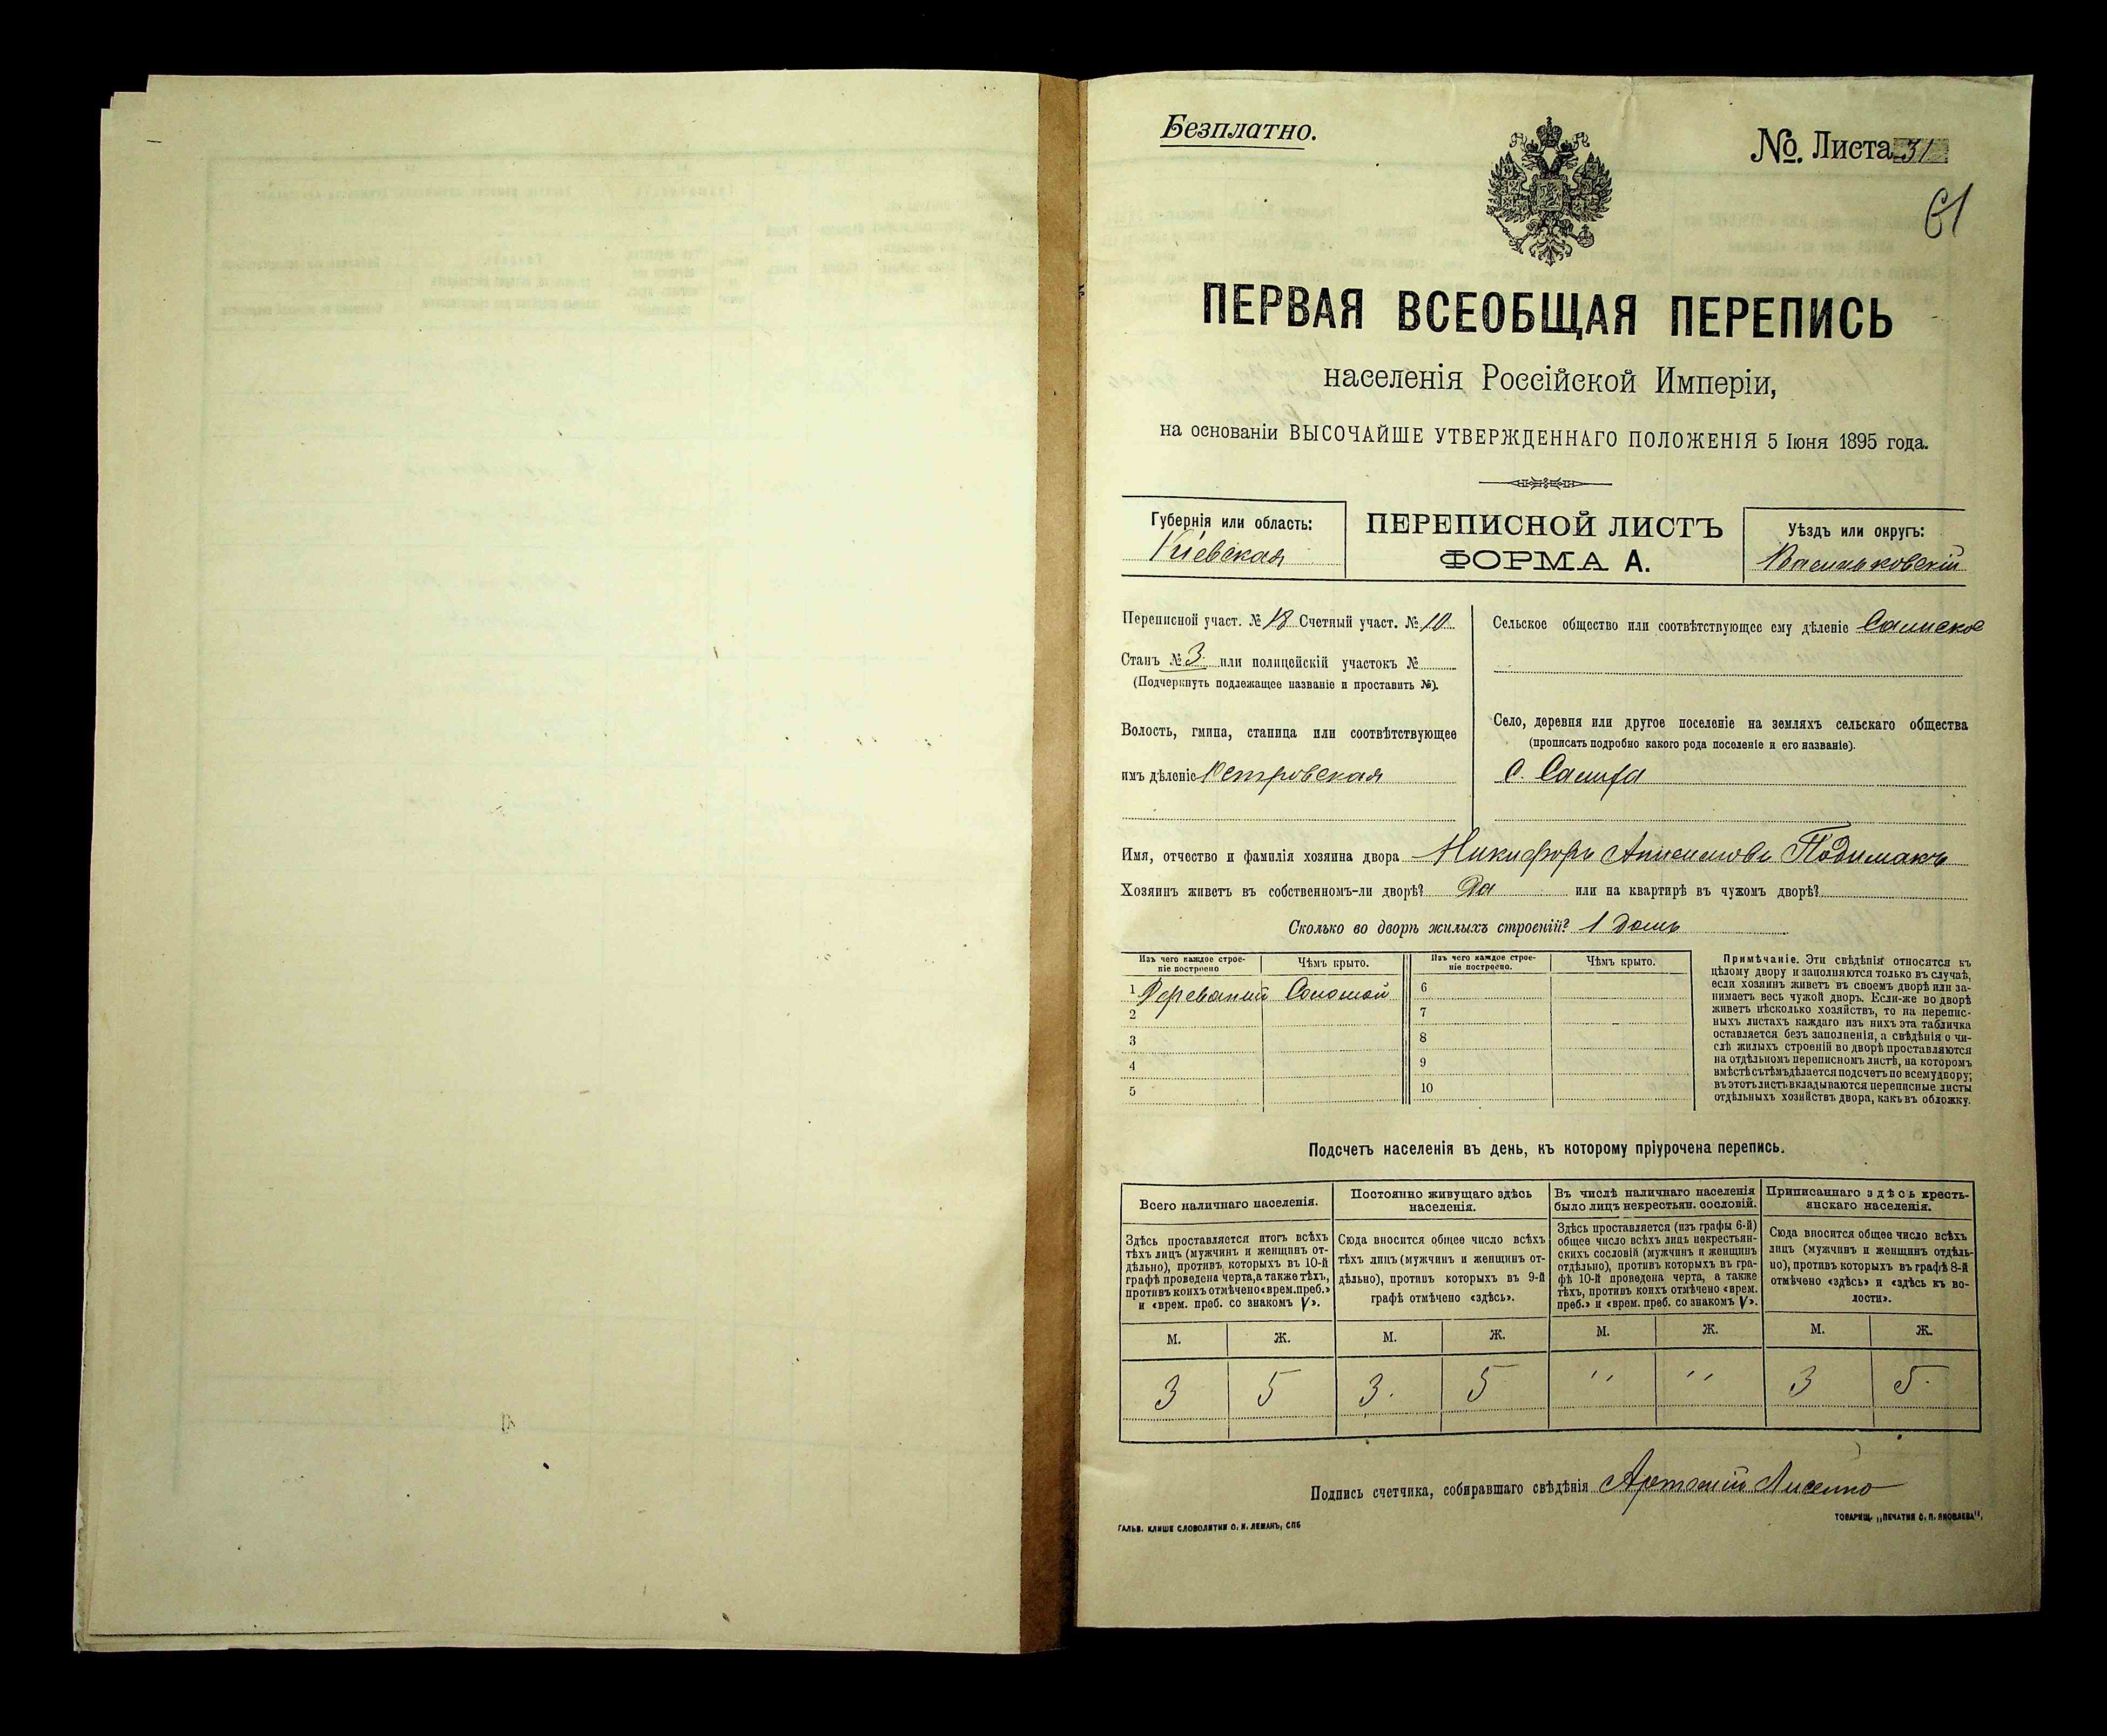 Безплатно.
№. Листа 31
61
ПЕРВАЯ ВСЕОБЩАЯ ПЕРЕПИСЬ
населенія Россійской Имперіи,
на основаніи ВЫСОЧАЙШЕ УТВЕРЖДЕННАГО ПОЛОЖЕНІЯ 5 Іюня 1895 года.
Губернія или область:
Кіевская
ПЕРЕПИСНОЙ ЛИСТЪ
ФОРМА А.
Уѣздъ или округъ:
Васильковскій
Переписной участ. № 18 Счетный участ. № 10
Станъ № 3 или полицейскій участокъ №
(Подчеркнуть подлежащее названіе и проставить №).
Волость, гмина, станица или соотвѣтствующее
имъ дѣленіе Петровская
Сельское общество или соотвѣтствующее ему дѣленіе
Село, деревня или другое поселеніе на земляхъ сельскаго общества
(прописать подробно какого рода поселеніе и его названіе).
с.
Имя, отчество и фамилія хозяина двора Никифоръ
Хозяинъ живетъ въ собственномъ-ли дворѣ? Да или на квартирѣ въ чужомъ дворѣ?
Сколько во дворѣ жилыхъ строеній? 1 домъ
Изъ чего каждое строе-
ніе построено
Чѣмъ крыто.
Изъ чего каждое строе-
ніе построено.
Чѣмъ крыто.
1 Деревяний Соломой
2
3
4
5
6
7
8
9
10
Примѣчаніе. Эти свѣдѣнія относятся къ
цѣлому двору и заполняются только въ случаѣ,
если хозяинъ живетъ въ своемъ дворѣ или за-
нимаетъ весь чужой дворъ. Если-же во дворѣ
живетъ нѣсколько хозяйствъ, то на перепис-
ныхъ листахъ каждаго изъ нихъ эта табличка
оставляется безъ заполненія, а свѣдѣнія о чи-
слѣ жилыхъ строеній во дворѣ проставляются
на отдѣльномъ переписномъ листѣ, на которомъ
вмѣстѣ съ тѣмъ дѣлается подсчетъ по всему двору;
въ этотъ листъ вкладываются переписные листы
отдѣльныхъ хозяйствъ двора, какъ въ обложку.
Подсчетъ населенія въ день, къ которому пріурочена перепись.
Всего наличнаго населенія.
Здѣсь проставляется итогъ всѣхъ
тѣхъ лицъ (мужчинъ и женщинъ от-
дѣльно), противъ которыхъ въ 10-й
графѣ проведена черта, а также тѣхъ,
противъ коихъ отмѣчено «врем. преб.»
и «врем. преб. со знакомъ V».
Постоянно живущаго здѣсь
населенія.
Сюда вносится общее число всѣхъ
тѣхъ лицъ (мужчинъ и женщинъ от-
дѣльно), противъ которыхъ въ 9-й
графѣ отмѣчено «здѣсь».
Въ числѣ наличнаго населенія
было лицъ некрестьян. сословій.
Здѣсь проставляется (изъ графы 6-й)
общее число всѣхъ лицъ некрестьян-
скихъ сословій (мужчинъ и женщинъ
отдѣльно), противъ которыхъ въ гра-
фѣ 10-й проведена черта, а также
тѣхъ, противъ коихъ отмѣчено «врем.
преб.» и «врем. преб. со знакомъ V».
Приписаннаго здѣсь кресть-
янскаго населенія.
Сюда вносится общее число всѣхъ
лицъ (мужчинъ и женщинъ отдѣль-
но), противъ которыхъ въ графѣ 8-й
отмѣчено «здѣсь» и «здѣсь къ во-
лости».
М. Ж. М. Ж. М. Ж. М. Ж.
3 5 3. 5 " " 3 5.
Подпись счетчика, собиравшаго свѣдѣнія
ГАЛЬВ. КЛИШЕ СЛОВОЛИТНИ О. И. ЛЕМАНЪ, СПБ
ТОВАРИЩ. „ПЕЧАТНЯ С. П. ЯКОВЛЕВА",